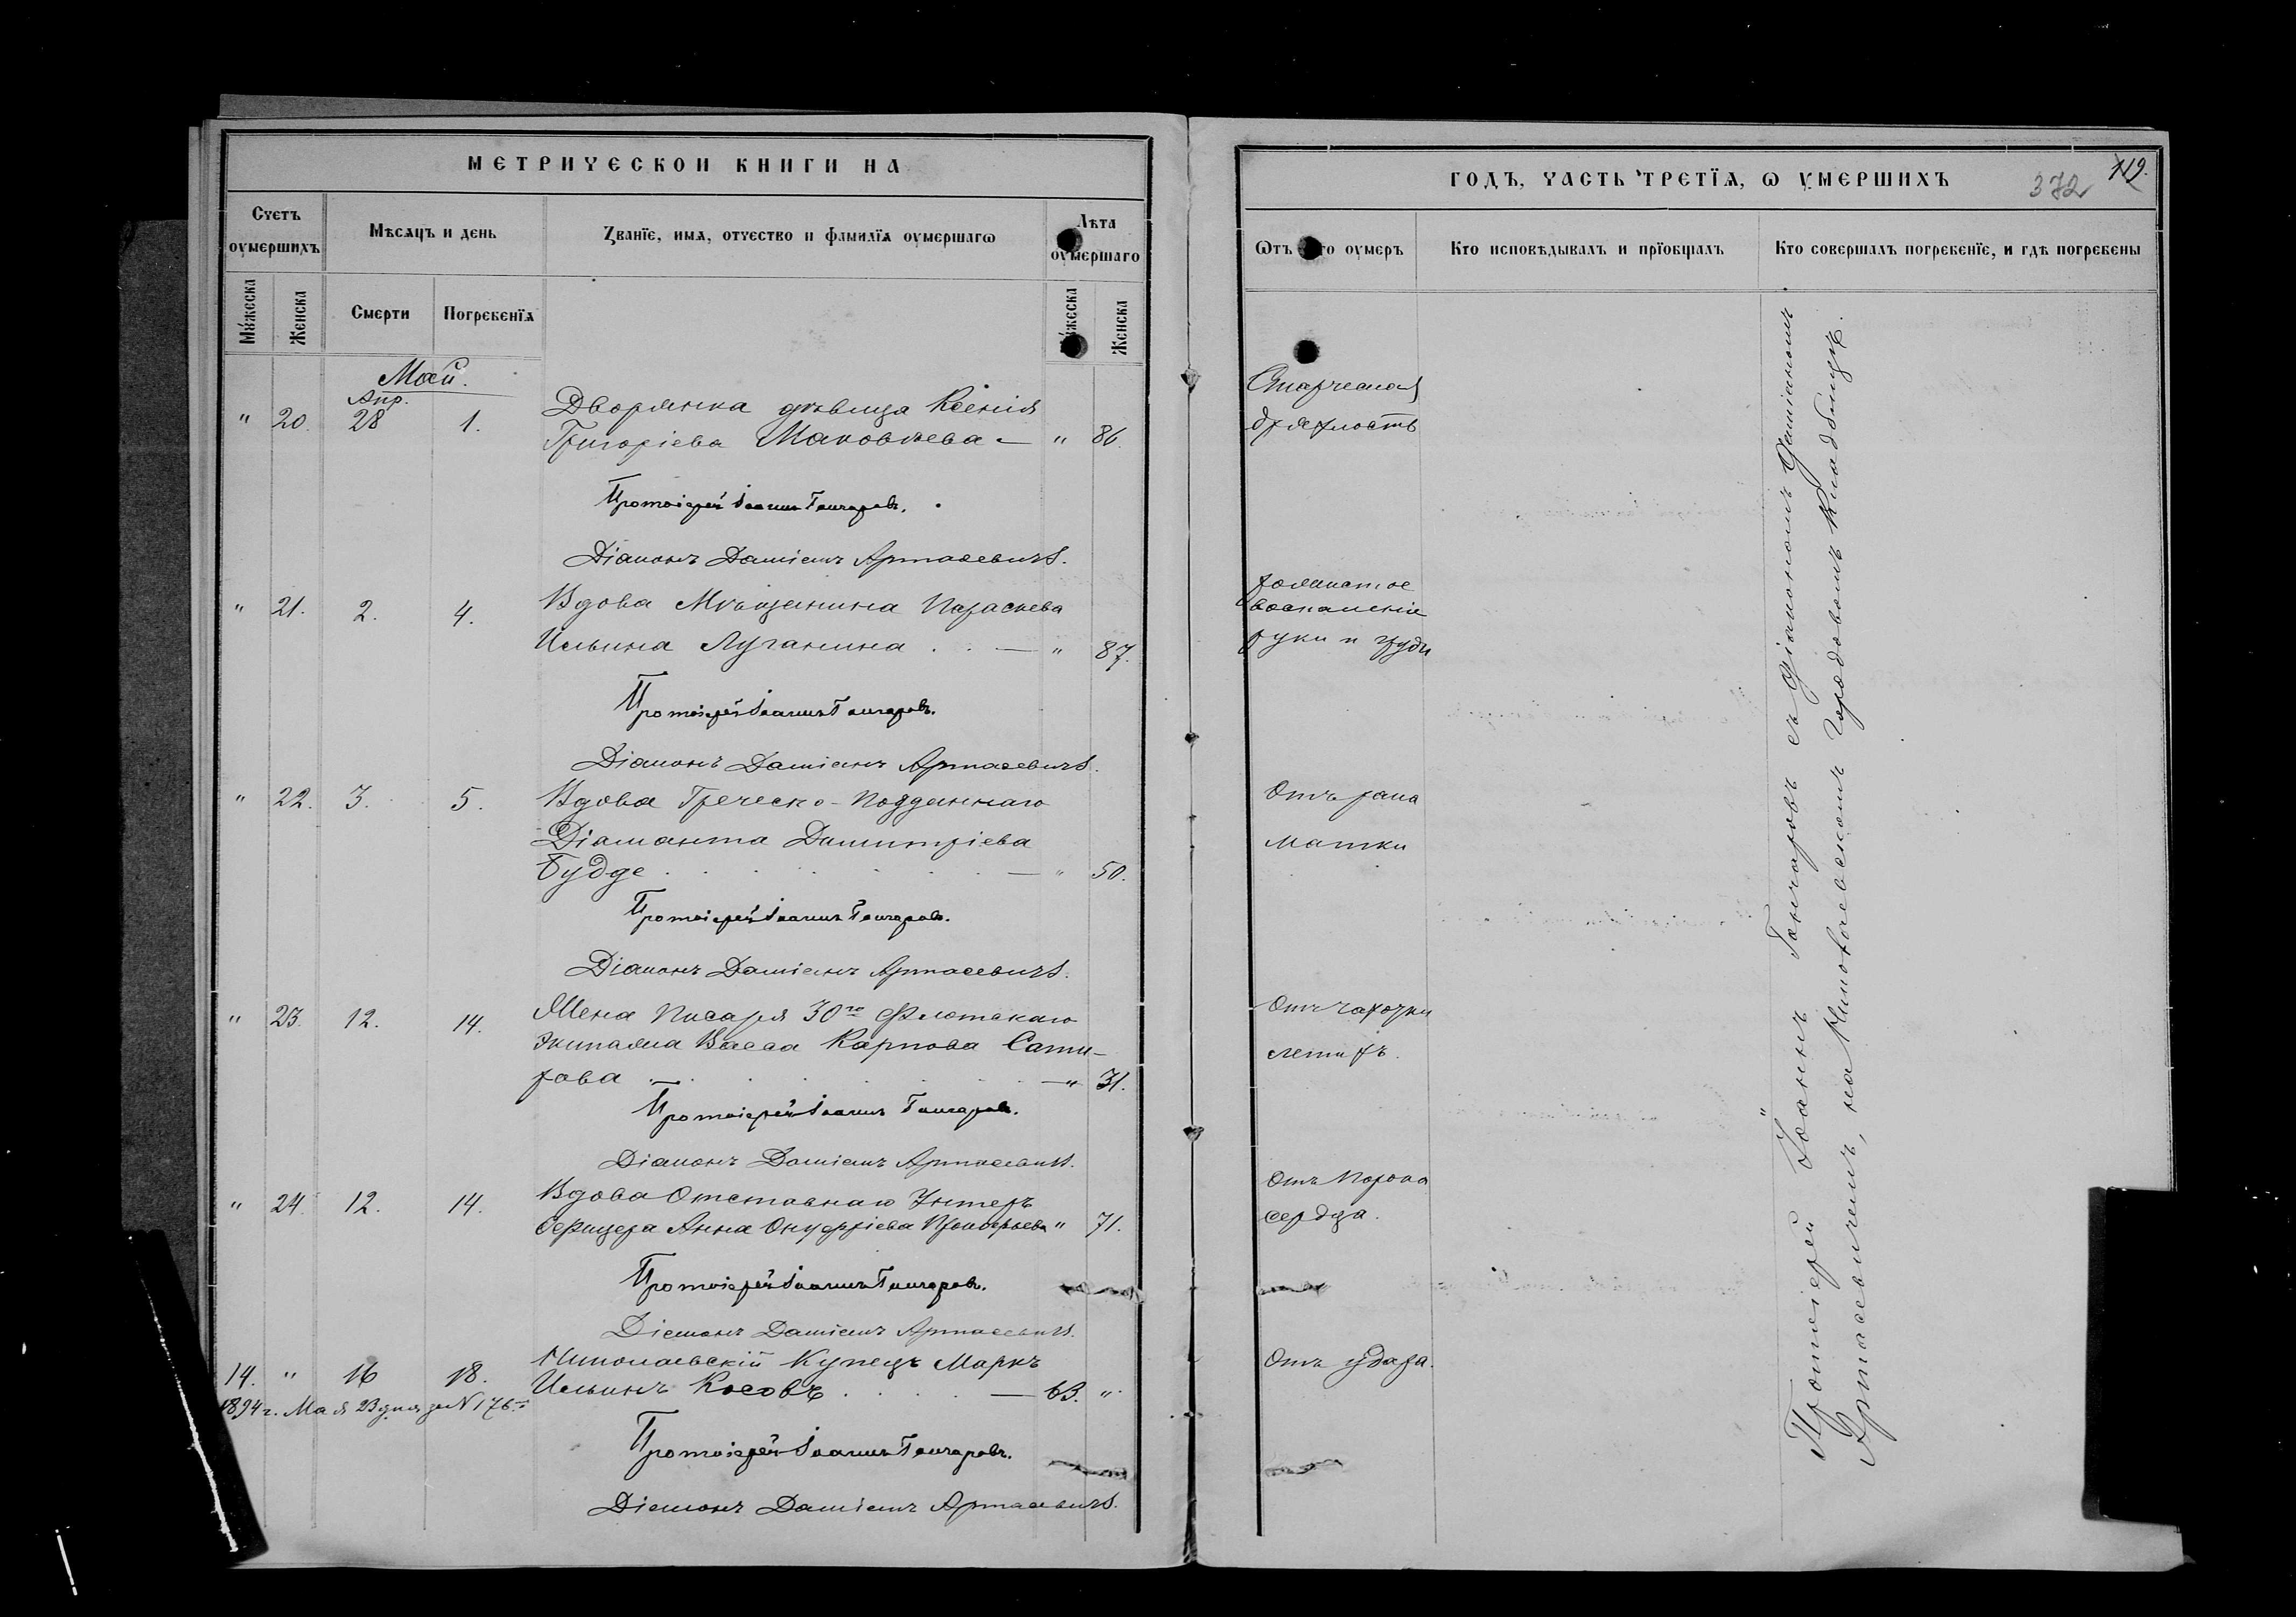 МЕТРИЧЕСКОЙ КНИГИ НА
Счетъ
оумершихъ
Мѣсяцъ и день
Званїе, имя, отчество и фамилїя оумершагω
Лѣта
оумершаго
Мужеска
Женска
Смерти
Погребенїя
Мужеска
Женска
Май.
Апр.
" 20. 28 1. Дворянка дѣвица Ксенія
Григоріева Маковѣева — " 86.
Протоіерей Іоаннъ Гончаровъ.
Діаконъ Даміанъ Артасевичъ.
" 21. 2. 4. Вдова Мѣщанина Параскева
Ильина Луганина . . — " 87.
Протоіерей Іоаннъ Гончаровъ.
Діаконъ Даміанъ Артасевичъ.
" 22. 3. 5. Вдова Греческо-подданнаго
Діаманта Димитріева
Будде . . . . — " 50.
Протоіерей Іоаннъ Гончаровъ.
Діаконъ Даміанъ Артасевичъ.
" 23. 12. 14. Жена Писаря 30го Флотскаго
Экипажа Васса Карпова Сати-
рова . . . . — " 31.
Протоіерей Іоаннъ Гончаровъ.
Діаконъ Даміанъ Артасевичъ.
" 24. 12. 14. Вдова Отставнаго Унтеръ
Офицера Анна Онуфріева " 71.
Протоіерей Іоаннъ Гончаровъ.
Діаконъ Даміанъ Артасевичъ.
14. " 16 18. Николаевскій Купецъ Маркъ
Ильинъ Косовъ . . . — 63. "
1894 г. Мая 23 дня за N 176.
Протоіерей Іоаннъ Гончаровъ.
Діаконъ Даміанъ Артасевичъ.
ГОДЪ, ЧАСТЬ ТРЕТЇЯ, Ѡ УМЕРШИХЪ
372
112.
Ѡтъ чего оумеръ
Кто исповѣдывалъ и прїобщалъ
Кто совершалъ погребенїе, и гдѣ погребены
Старческая
дряхлость
рожистое
воспаленіе
руки и груди
Отъ рака
матки
Отъ чахотки
легкихъ.
Отъ порока
сердца.
Отъ удара.
Протоіерей Іоаннъ Гончаровъ съ діакономъ Даміаномъ
Артасевичемъ, на Николаевскомъ Городовомъ Кладбищѣ.